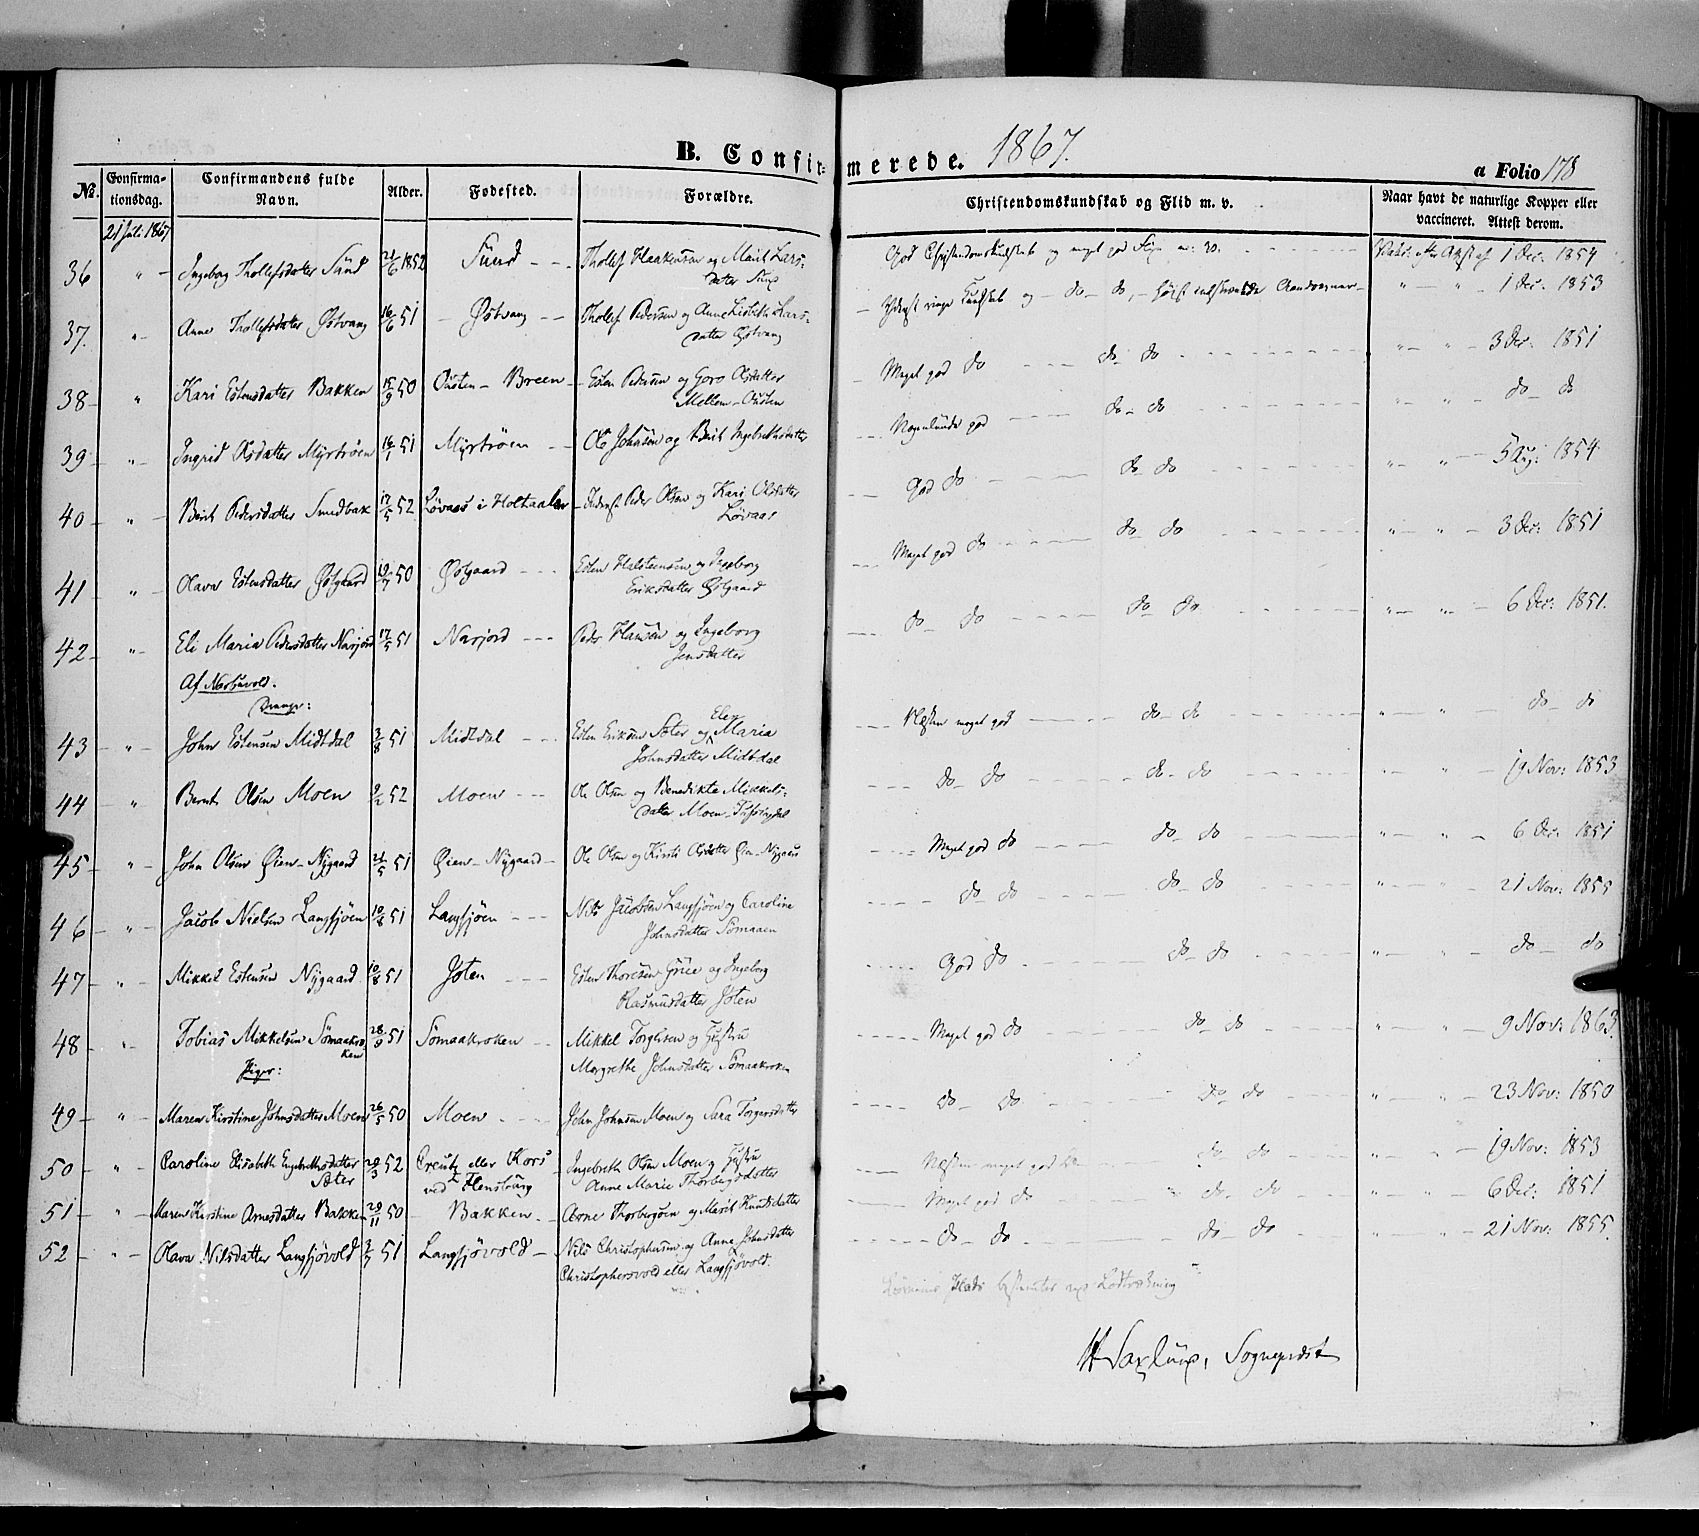 B. Confirmerede. 1867.
a Folio 178
No. Confirmationsdag. Confirmandens fulde Navn. Alder. Fødested. Forældre. Christendomskundskab og Flid m. v. Naar havt de naturlige Kopper eller vaccineret. Attest derom.
21 Juli 1867
36 " Ingeborg Thollefsdatter Sund 21/6 1852 Sund Thollef Haakensen og Marit Larsdatter Sund God Christendomskundskab og meget god Flid 1 Dec: 1854
37. " Anne Thollefsdatter Østvang 16/6 51 Østvang Thollef Pedersen og Anne Lisbeth Larsdatter Østvang Yderst ringe Kundskab og do do, 1 Dec: 1853
38 " Kari Estensdatter Bakken 15/9 50 Ousten-Breen Esten Pedersen og Goro Olsdatter Mellem-Ousten Meget god do do do 3 Dec: 1851
39 " Ingrid Olsdatter Myrtrøen 16/1 51 Myrtrøen Ole Johnsen og Berit Ingebrethsdatter Nogenlunde god do do do do
40 " Berit Pedersdatter Smedbak 17/5 52 Løvaas i Holtaalen Peder Olsen og Kari Olsdatter Løvaas God do do do 5 Aug: 1854
41 " Olava Estensdatter Østgaard 19/7 50 Østgaard Esten Halsteensen og Ingeborg Eriksdatter Østgaard Meget god do do do 3 Dec: 1851
42 " Eli Maria Pedersdatter Narjord 17/5 51 Narjord Peder Hansen og Ingeborg Jensdatter do do do do 6 Dec: 1851.
Af Narbuvold.
Drenge:
43 " John Estensen Midtdal 3/8 51 Midtdal Esten Eriksen Sæter og Elen Maria Johnsdatter Midtdal Næsten meget god do do do do
44 " Bernt Olsen Moen 9/2 52 Moen Ole Olsen og Benedikte Mikkelsdatter Moen do do do do 19 Nov: 1853
45 " John Olsen Øien-Nygaard 21/5 51 Øien-Nygaard Ole Olsen og Kirsti Olsdatter Øien-Nygaard Meget god do do do 6 Dec: 1851
46 " Jacob Nielsen Langsjøen 10/8 51 Langsjøen Nils Jacobsen Langsjøen og Caroline Johnsdatter Sømaaen do do do do 21 Nov: 1855
47 " Mikkel Estensen Nygaard 10/8 51 Joten Esten Thoresen Grue og Ingeborg Rasmusdatter Joten God do do do do do
48 " Tobias Mikkelsen Sømaakroken 28/9 51 Sømaakroken Mikkel Torgersen og Hustru Margrethe Johnsdatter Sømaakroken Meget god do do do 9 Nov: 1863.
Piger:
49 " Maren Kirstine Johnsdatter Moen 26/5 50 Moen John Johnsen Moen og Sara Torgersdatter do do do do 23 Nov: 1850
50 " Caroline Elisabeth Engebrethsdatter Sæter 29/3 52 Creutz eller Kors ved Flensburg Ingebreth Olsen Moen og Hustru Anne Marie Thorbergsdatter Næsten meget god do do do 19 Nov: 1853
51 " Maren Kirstine Arnesdatter Bakken 29/11 50 Bakken Arne Thorbergsen og Marit Knudsdatter Meget god do do do 6 Dec: 1851
52 " Olava Nilsdatter Langsjøvold 3/7 51 Langsjøvold Nils Christophersen og Anne Johnsdatter Christophersvold eller Langsjøvold. do do do do 21 Nov: 1855.
bestemtes ved Lodtrækning
Saxlund, Sognepræst